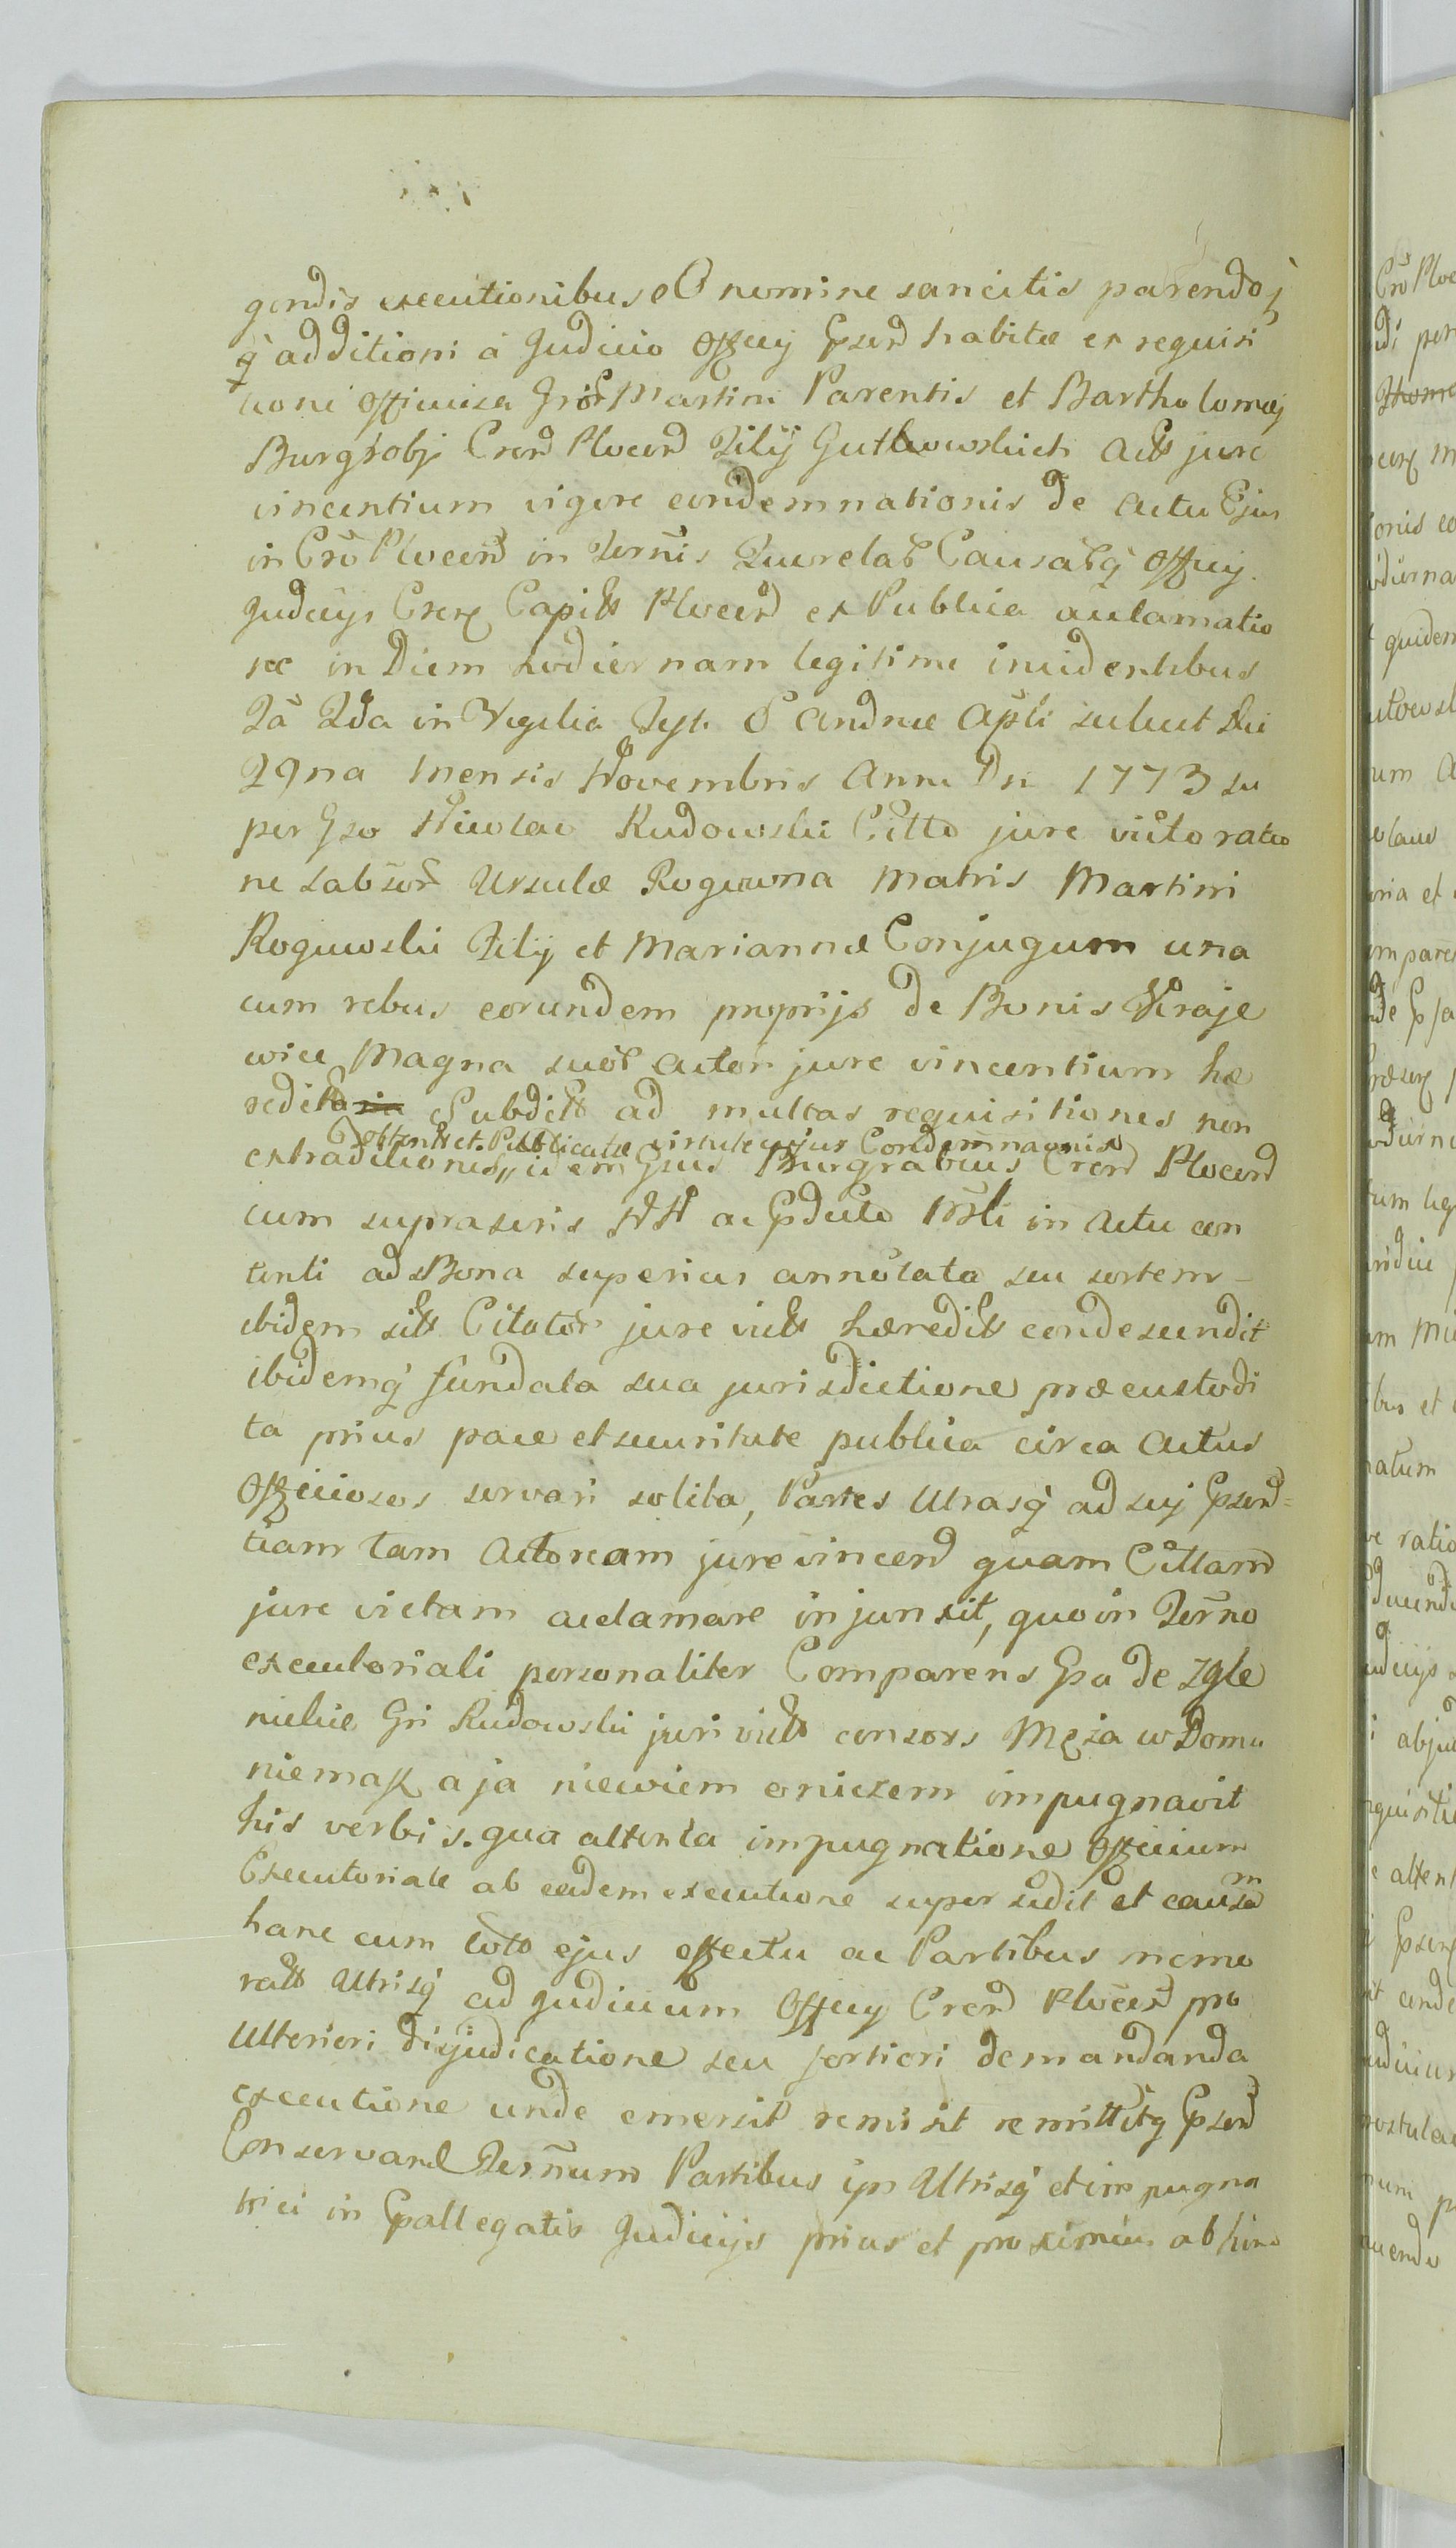 gendis executionibus eo nomine sancitis parendo
q̃ additioni à Judicio Officij Prsend habitæ ex requisi
tioni officiosa Gror Martini Parentis et Bartholomæj
Burgrabj Cren Plocen Filij Gutkowskich Actt jure
vincentium vigore condemnationis de Actu Ejus
in Cro Plocen in Ternis Querelar Causarq̃ Officij
Judicijs Cren Capitt Plocen ex Publica acclamatio
ne in Diem hodiernam legitime incidentibus
Fa 2da in Vigilia Fest S Andreæ Apli scilicet Die
29na Mensis Novembris Anni Dni 1773 su
per Gso Nicolao Rudowski Citto jure victo ratio
ne Labsor Ursulæ Roguwna Matris Martini
Roguwski Filij et Mariannæ Conjugum una
cum rebus eorundem proprijs de Bonis Kraje
wice Magna suor Actor jure vincentium hæ
redit Subditt ad multas requisitiones non
obtent et Publicatæ virtute cujus Condemnaonis
extraditionis idem Gsus Burgrabius Cren Plocen
cum suprascris NN ac Prducto Mrli in Actu con
tenti ad Bona superius annotata seu sortem
ibidem sitt Citator jure victt hæreditt condescendit
ibidemq̃ fundata sua jurisdictione præcustodi
ta prius pace et securitate publica circa Actus
Officiosos servari solita, Partes Utrasq̃ ad suj Prsen=
tiam tam Actoream jure vincen quam Cittam
jure victam acclamare injunxit, quo in Terno
executoriali personaliter Comparens Gsa de Zgle
nickie Gsi Rudowski juri victt consors Męża w Domu
niemasz a ja niewiem oniczem impugnavit
his verbis. qua attenta impugnatione Officium
Executoriale ab eadem executione supersedit et causam
hanc cum toto ejus effectu ac Partibus memo
ratt Utrisq̃ ad Judicium Officij Cren Plocen pro
Ulteriori dijudicatione seu fortiori demandanda
executione unde emersit remisit remittitq̃ Prsen
Conservand Ternum Partibus ips Utrisq̃ et impugna
trici in Prallegatis Judicijs prius et proximius abhinc